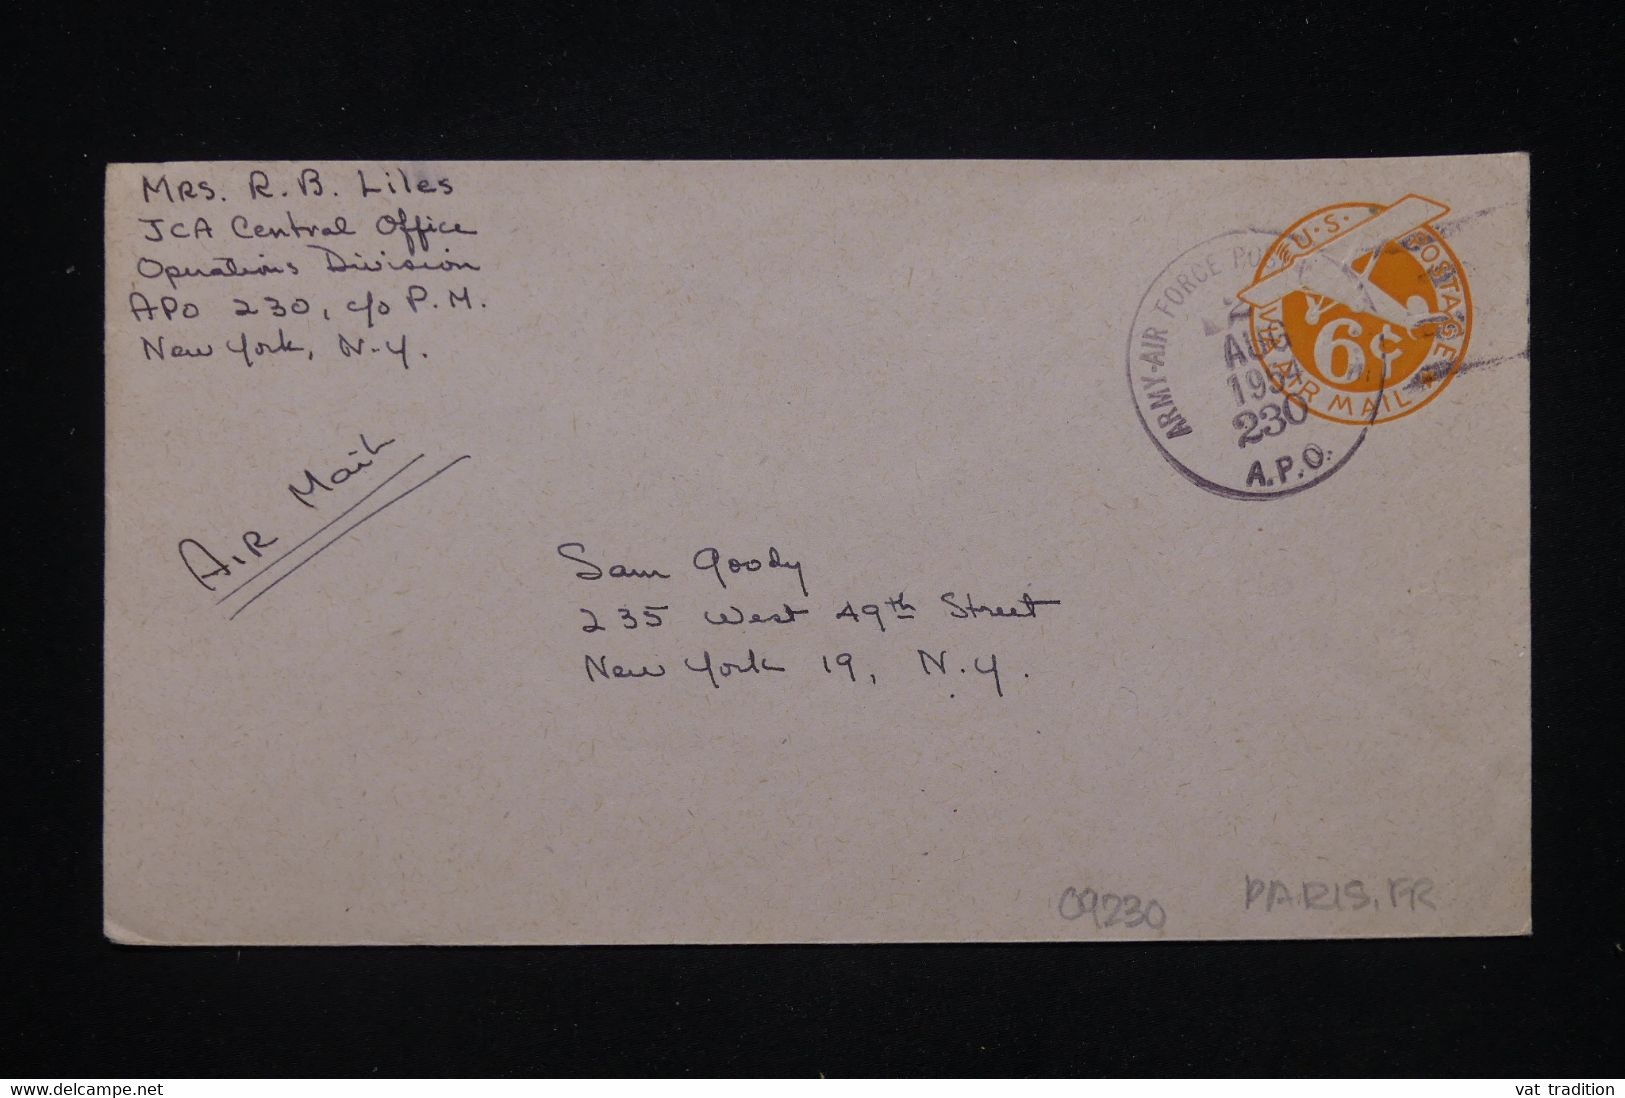 Mrs. R. B. Liles
JCA Central Office
Operations Division
APO 230, c/o P.M.
New York, N.Y.
AIR Mail
ARMY-AIR FORCE
AUG
230
A.P.O.
U.S. POSTAGE
VIA AIR MAIL
6¢
Sam Goody
235 West 49th Street
New York 19, N.Y.
09230
PARIS, FR
www.delcampe.net
vat tradition